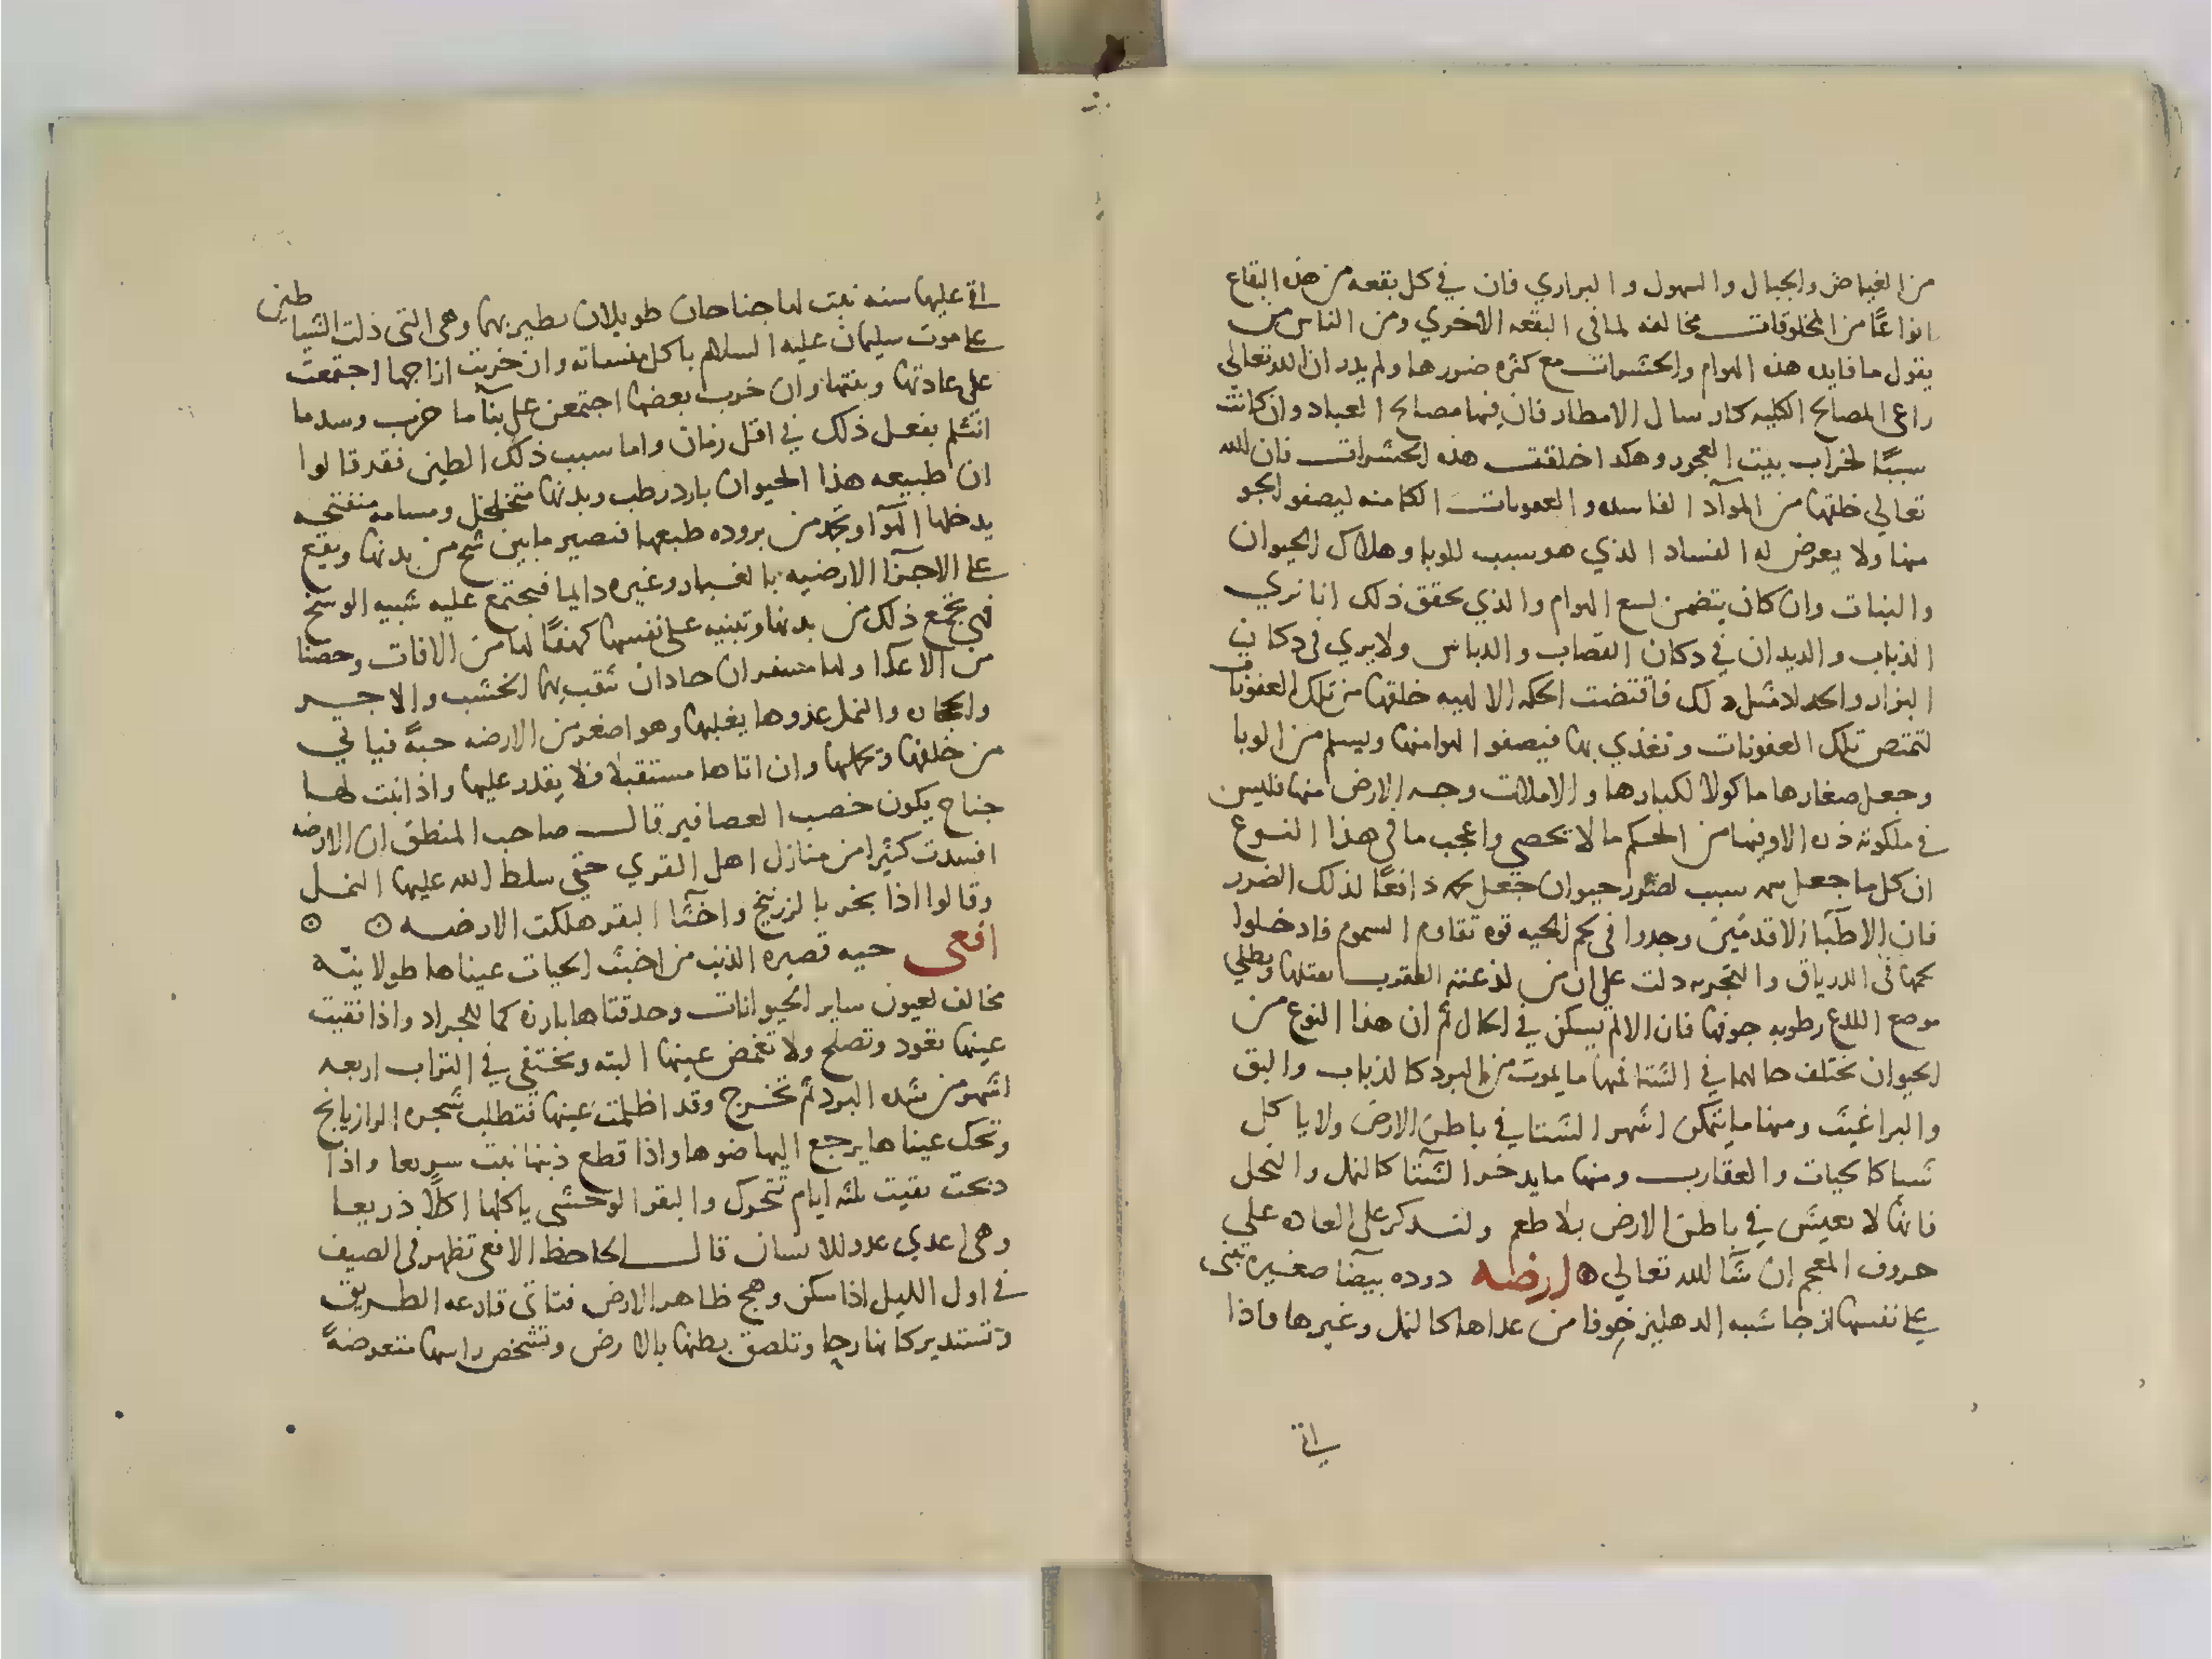 من الغياض والجبال والسهول والبراري فان في كل بقعه من هذه البقاع
انواعًا من المخلوقات مخالفه لما في البقعه الاخري ومن الناس من
يقول ما فايده هذه الهوام والحشرات مع كثره ضررها ولم يدر ان الله تعالي
راعي المصالح الكليه كارسال الامطار فان فيها مصالح العباد وان كانت
سببًا لخراب بيت العجوز وهكدا خلقت هذه الحشرات فان الله
تعالي خلقها من الموآد الفاسده والعفونات الكامنه ليصفو الجو
منها ولا يعرض له الفساد الذي هو سبب للوبا وهلاك الحيوان
والنبات وان كان يتضمن لسع الهوام والذي يحقق ذلك انا نري
الذباب والديدان في دكان القصاب والدباس ولا يري في دكان
البزاز والحداد مثل ذلك فاقتضت الحكمه الالهيه خلقها من تلك العفونات
لتمتص تلك العفونات وتغذي بها فيصفوا الهوا منها ويسلم من الوبا
وجعل صغارها ماكولا لكبارها والا ملات وجه الارض منها فليس
في ملكوته ذره الا وفيها من الحكم ما لا تحصي واعجب ما في هذا النوع
ان كل ما جعل سمه سبب لضرر حيوان جعل لحمه دافعًا لذلك الضرر
فان الاطبآ الاقدمين وجدوا في لحم الحيه قوه تقاوم السموم فادخلوا
لحمها في الدرياق والتجربه دلت علي ان من لدغته العقرب يقتلها ويطلي
موضع اللدغ رطوبه جوفها فان الالم يسكن في الحال ثم ان هذا النوع من
الحيوان تختلف حالها في الشتا فمنها ما يموت من البرد كالذباب والبق
والبراغيث ومنها ما يتمكن اشهر الشتا في باطن الارض ولا ياكل
شيا كالحيات والعقارب ومنها ما يدخر الشتآ كالنمل والنحل
فانها لا تعيش في باطن الارض بلا طعم ولنذكر علي العاده علي
حروف المعجم ان شآ الله تعالي ارضه دوده بيضآ صغيره تبني
علي نفسها ازجا شبه الدهليز خوفا من عداها كالنمل وغيرها واذا
اتي
اتي عليها سنه نبت لها جناحان طويلان تطير بهما وهي التي دلت الشياطين
علي موت سليمان عليه السلام باكل منساته وان خربت ازاجها اجتمعت
علي عادتها وبنتها وان خرب بعضها اجتمعن علي بنآ ما خرب وسد ما
انثلم بفعل ذلك في اقل زمان واما سبب ذلك الطين فقد قالوا
ان طبيعه هذا الحيوان بارد رطب وبدنها متخلخل ومسامه منفتحه
يدخلها الهوآ ويجمد من بروده طبعها فتصير ما بين شح من بدنها ويقع
علي الاجزآ الارضيه بالغبار وغيره دايما فيجتمع عليه شبيه الوسخ
فهي تجمع ذلك من بدنها وتبنيه علي نفسها كهفًا لها من الافات وحصنا
من الاعدا ولها مشفران حادان تثقب بهما الخشب والاجر
والحجاره والنمل عدوها يغلبها وهو اصغر من الارضه جثة فياتي
من خلفها وتحملها وان اتاها مستقبلا فلا يقدر عليها واذا نبت لها
جناح يكون خصب العصافير قال صاحب المنطق ان الارضه
افسدت كثيرا من منازل اهل القري حتي سلط الله عليها النمل
وقالوا اذا بخر بالزرنيخ واخثآ البقر هلكت الارضه
افعي حيه قصيره الذنب من اخبث الحيات عيناها طولانيه
مخالف لعيون ساير الحيوانات وحدقتاها بارزه كما للجراد واذا فقيت
عينها تعود وتصلح ولا تغمض عينها البته وتختفي في التراب اربعه
اشهر من شده البرد ثم تخرج وقد اظلمت عينها فتطلب شجره الرازيانج
وتحك عيناها يرجع اليها ضوها واذا قطع ذنبها نبت سريعا واذا
ذبحت بقيت ثلثه ايام تتحرك والبقر الوحشي ياكلها اكلاً ذريعا
وهي اعدي عدو للانسان قال الجاحظ الافعي تظهر في الصيف
في اول الليل اذا سكن وهج ظاهر الارض فتاتي قارعه الطريق
وتستدير كانها رحا وتلصق بطنها بالارض وتشخص راسها متعرضهً